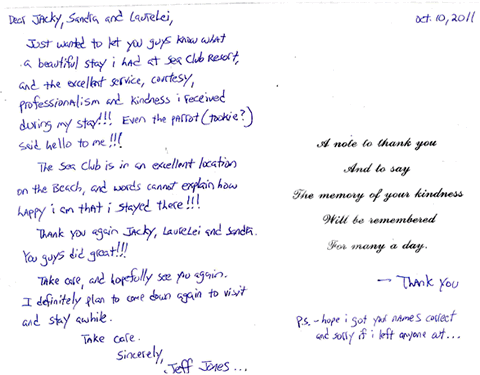 Dear Jacky, Sandra and Laurelei,
Just wanted to let you guys know what
a beautiful stay i had at Sea Club Resort,
and the excellent service, courtesy,
professionalism and kindness i received
during my stay!!! Even the parrot (tookie?)
said hello to me!!!
The Sea Club is in an excellent location
on the Beach, and words cannot explain how
happy i am that i stayed there!!!
Thank you again Jacky, Laurelei and Sandra.
You guys did great!!!
Take care, and hopefully see you again.
I definitely plan to come down again to visit
and stay awhile.
Take care.
Sincerely,
Jeff Jones...
Oct. 10, 2011
A note to thank you
And to say
The memory of your kindness
Will be remembered
For many a day.
— Thank you
P.S. - hope i got your names correct
and sorry if i left anyone out...